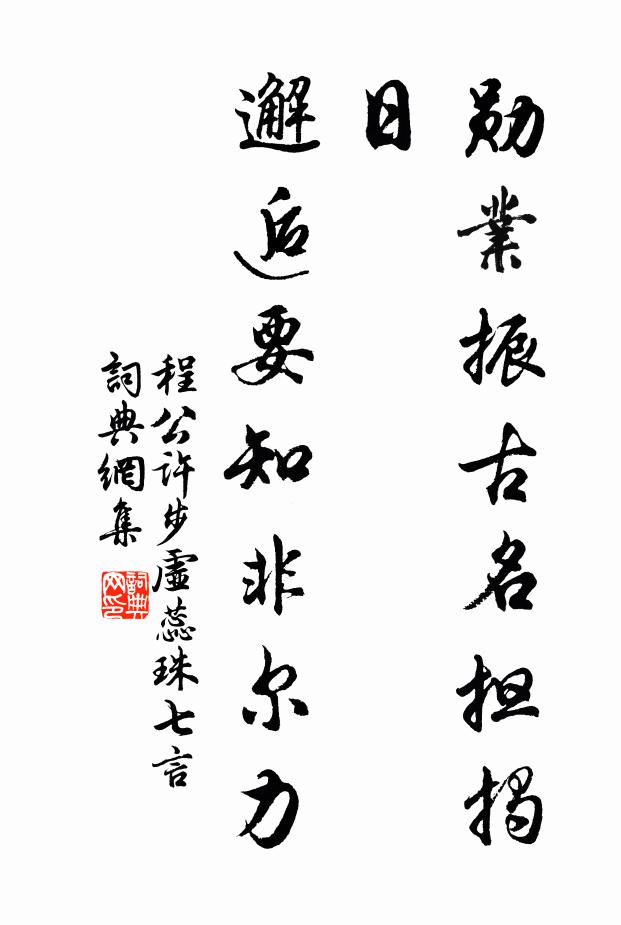 勋業振古名担揭
日
邂逅要知非尔力
程公许步虛蕊珠七言
詞典網集
詞典网印